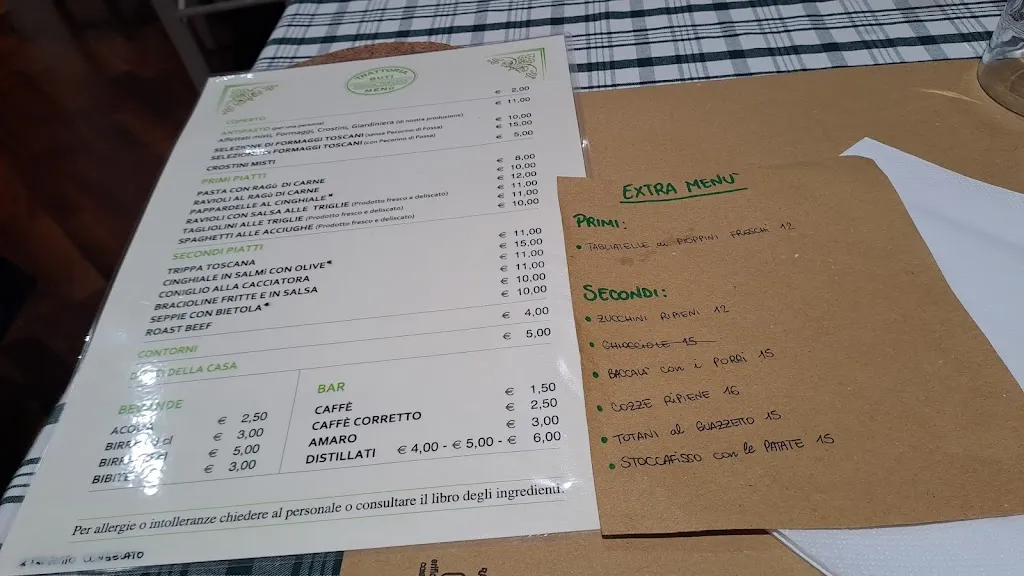 TRATTORIA
BUTI
MENÙ
COPERTO € 2,00
ANTIPASTO (per una persona) € 11,00
Affettati misti, Formaggi, Crostini, Giardiniera (di nostra produzione)
SELEZIONE DI FORMAGGI TOSCANI (senza Pecorino di Fossa) € 10,00
SELEZIONE DI FORMAGGI TOSCANI (con Pecorino di Fossa) € 15,00
CROSTINI MISTI € 5,00
PRIMI PIATTI
PASTA CON RAGÙ DI CARNE € 8,00
RAVIOLI AL RAGÙ DI CARNE € 10,00
PAPPARDELLE AL CINGHIALE* € 12,00
RAVIOLI CON SALSA ALLE TRIGLIE (Prodotto fresco e deliscato) € 11,00
TAGLIOLINI ALLE TRIGLIE (Prodotto fresco e deliscato) € 11,00
SPAGHETTI ALLE ACCIUGHE (Prodotto fresco e deliscato) € 10,00
SECONDI PIATTI
TRIPPA TOSCANA € 11,00
CINGHIALE IN SALMÌ CON OLIVE* € 15,00
CONIGLIO ALLA CACCIATORA € 11,00
BRACIOLINE FRITTE E IN SALSA € 11,00
SEPPIE CON BIETOLA* € 10,00
ROAST BEEF € 10,00
CONTORNI € 4,00
DELLA CASA € 5,00
BEVANDE
ACQUA € 2,50
BIRRA cl € 3,00
BIRRA cl € 5,00
BIBITE € 3,00
BAR
CAFFÈ € 1,50
CAFFÈ CORRETTO € 2,50
AMARO € 3,00
DISTILLATI € 4,00 - € 5,00 - € 6,00
Per allergie o intolleranze chiedere al personale o consultare il libro degli ingredienti.
CONGELATO
EXTRA MENU'
PRIMI:
• TAGLIATELLE ai PIOPPINI FRESCHI 12
SECONDI:
• ZUCCHINI RIPIENI 12
• CHIOCCIOLE 15
• BACCALA' con i PORRI 15
• COZZE RIPIENE 16
• TOTANI al GUAZZETTO 15
• STOCCAFISSO con le PATATE 15